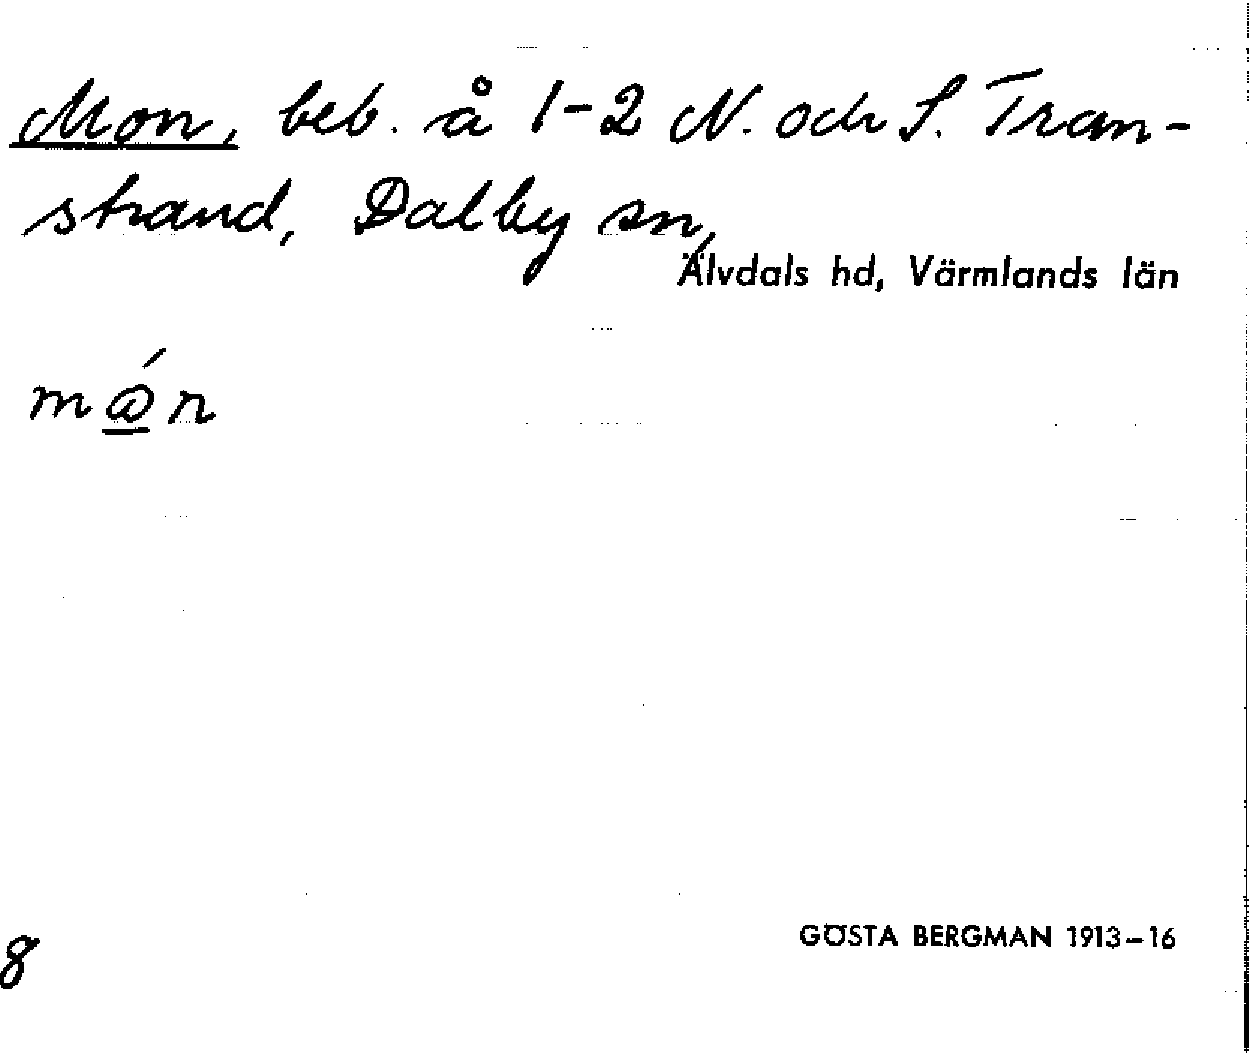 Mon, beb. å 1-2 N. och S. Tran-
strand, Dalby sn,
Älvdals hd, Värmlands län
GÖSTA BERGMAN 1913-16
8